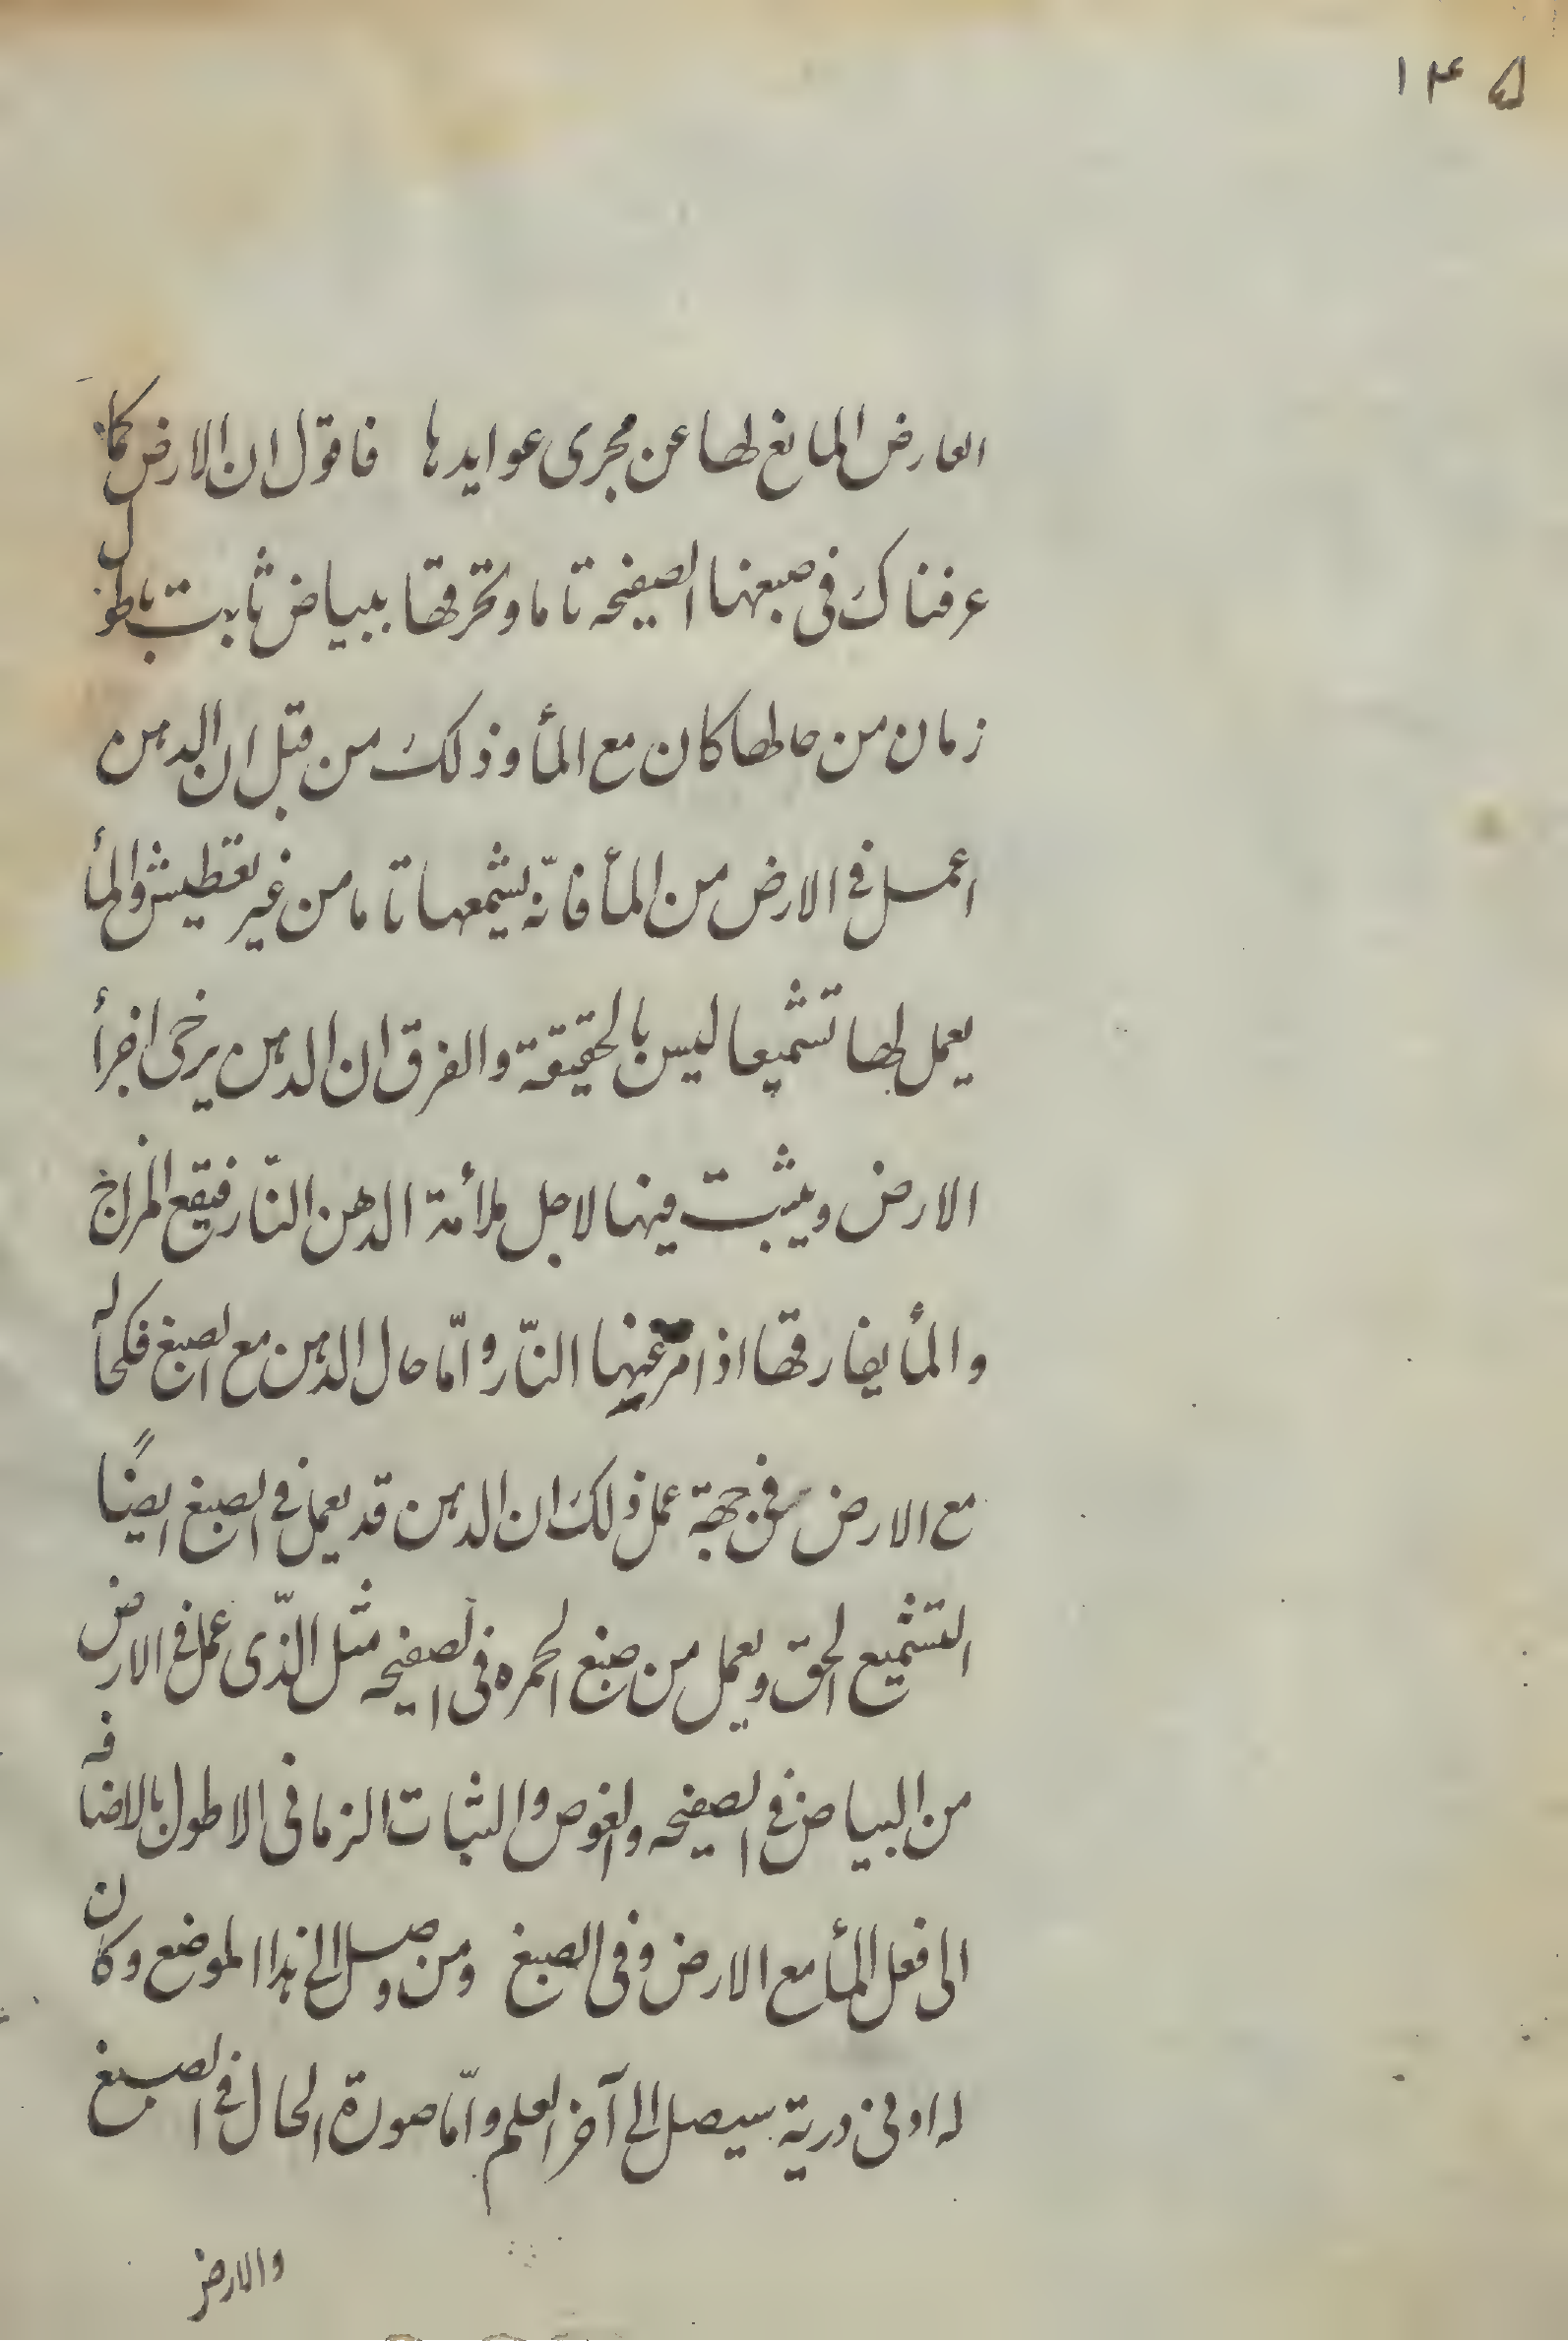 ١٤٥
العارض المانع لها عن مجرى عوايدها فاقول ان الارض كما
عرفناك فى صبعها الصفيحه تاما وتحرقها ببياض ثابت باطول
زمان من حالها كان مع المأ وذلك من قبل ان الدهن
اعمل فى الارض من المأ فانّه يشمعها تاما من غير تقطيش والمأ
يعمل لها تشميعا ليس بالحقيقة والفرق ان الدهن يرخى اجزأ
الارض ويثبت فيها لاجل ملأمة الدهن النّار فيقع المزاج
والمأ يفارقها اذا النّار وامّا حال الدهن مع الصبغ فكحاله
مع الارض جهة عمل ذلك ان الدهن قد يعمل فى الصبغ ايضًا
التشميع الحق ويعمل من صبغ الحمره فى الصفيحه مثل الذّى عمل فى الارض
من البياض فى الصفيحه والغوص والثبات الزمانى الاطول بالاضافه
الى فعل المأ مع الارض وفى الصبغ ومن وصل الى هذا الموضع وكان
له ادنى درية سيصل الى آخر العلم وامّا صورة الحال فى الصبغ
والارض